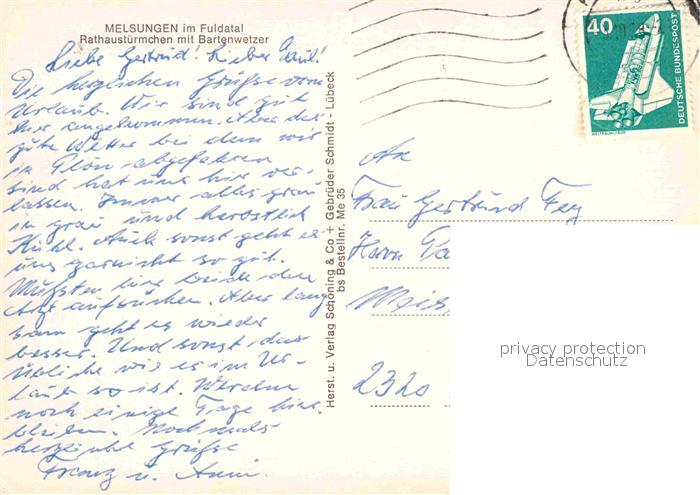 MELSUNGEN im Fuldatal
Rathaustürmchen mit Bartenwetzer
Liebe Gertrud! Lieber Paul!
Die herzlichen Grüsse vom
Urlaub. Wir sind gut
hier angekommen. Aber das
gute Wetter bei dem wir
in Plön abgefahren
sind hat uns hier ver-
lassen. Immer alles grau
in grau und herbstlich
kühl. Auch sonst geht es
uns garnicht so gut.
Mußten wir beide den
Arzt aufsuchen. Aber lang
sam geht es wieder
besser. Und sonst das
übliche wie es im Ur-
laub so ist. Werden
noch einige Tage hier
bleiben. Nochmals
herzliche Grüße
Franz u. Anni.
Herst. u. Verlag Schöning & Co + Gebrüder Schmidt - Lübeck
bs Bestellnr. Me 35
40
DEUTSCHE BUNDESPOST
WELTRAUMLABOR
An
Frau Gertrud Fey
Herrn
2320
privacy protection
Datenschutz